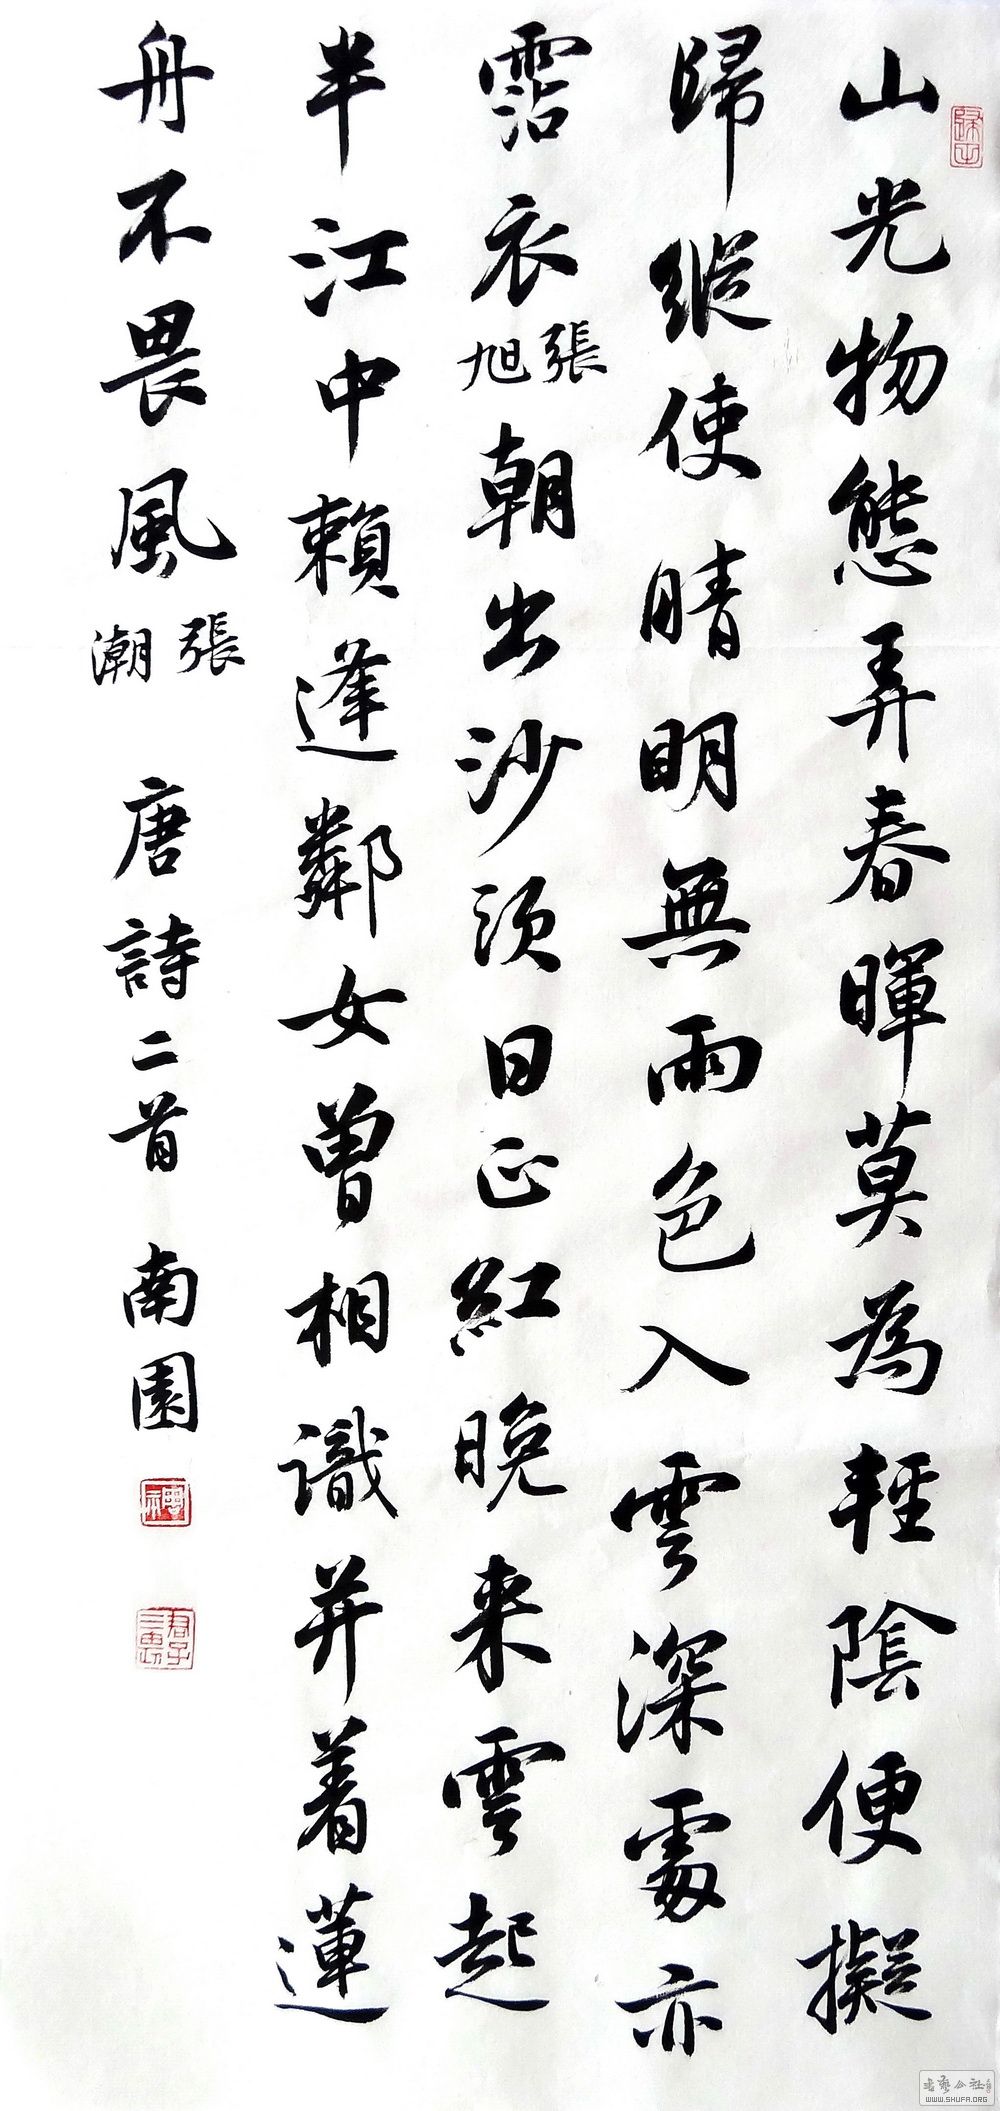 山光物態弄春暉莫為輕陰便擬
歸縱使晴明無雨色入雲深處亦
霑衣張旭朝出沙頭日正紅晚来雲起
半江中賴逢鄰女曾相識并着蓮
舟不畏風張潮 唐詩二首 南園
君子三思
WWW.SHUFA.ORG